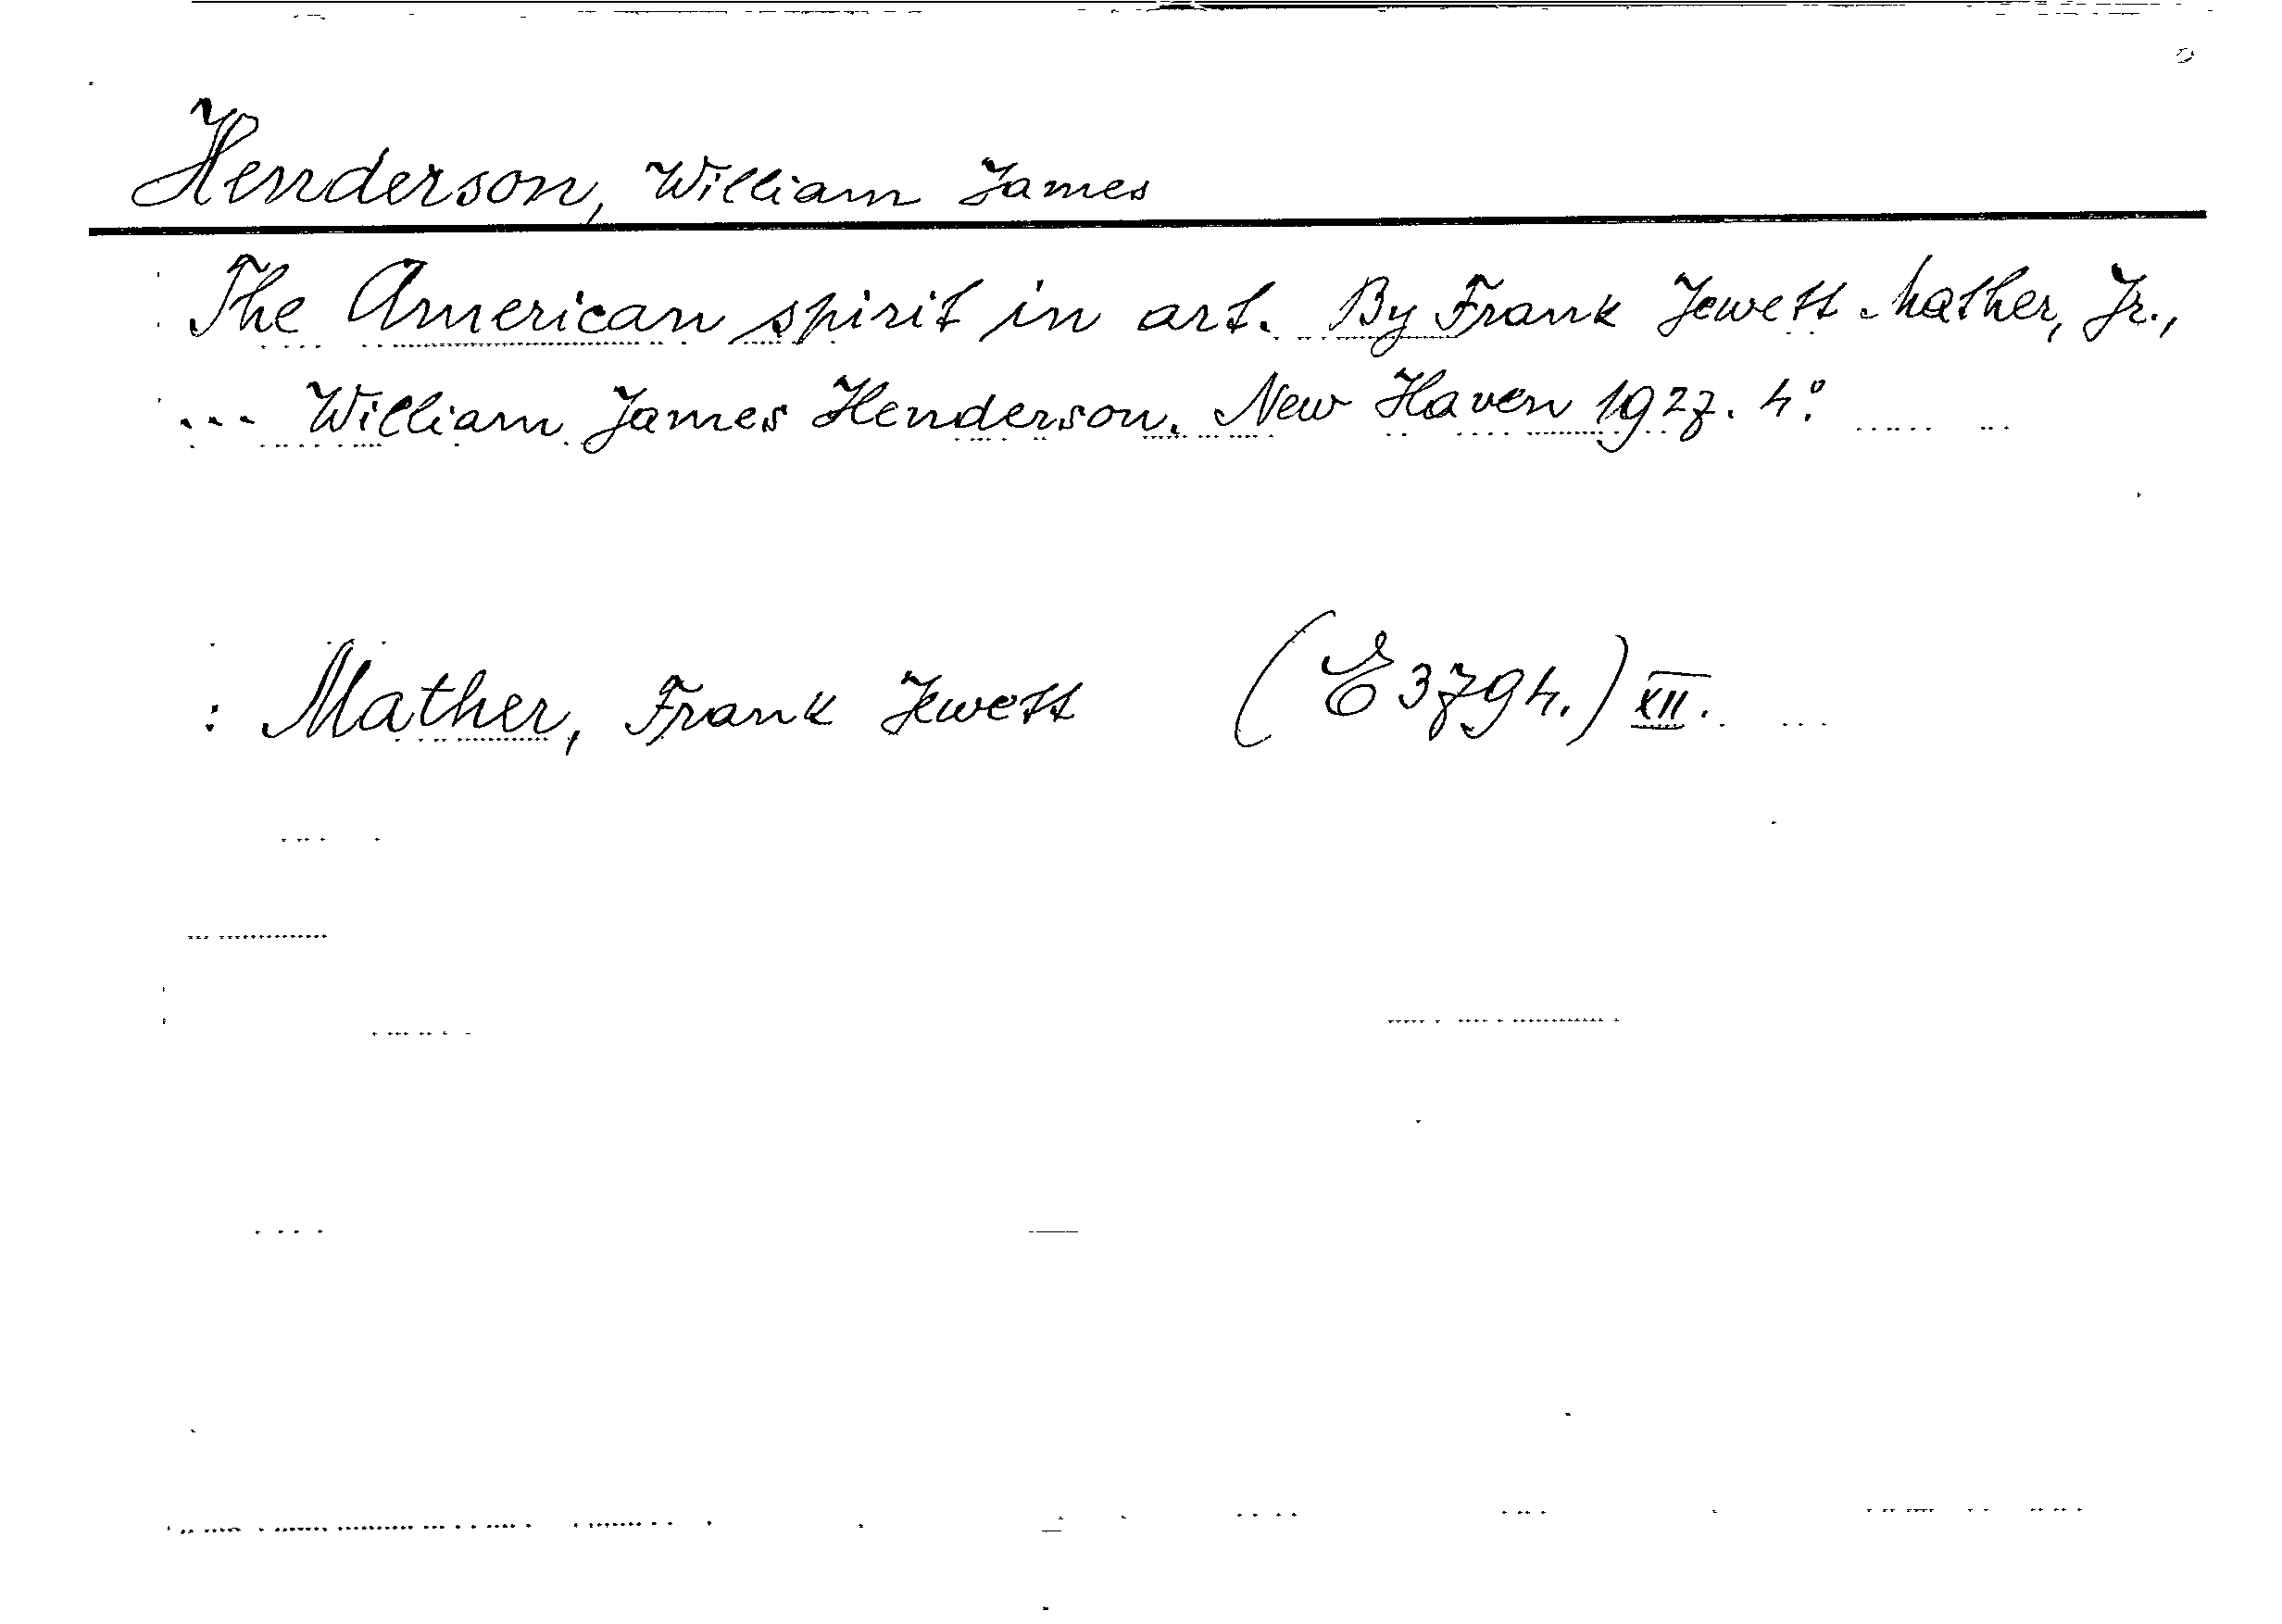 Henderson, William James
The American spirit in art. By Frank Jewett Mather, Jr.,
... William James Henderson. New Haven 1927. 4:°
: Mather, Frank Jewett (E 3794.) XII.